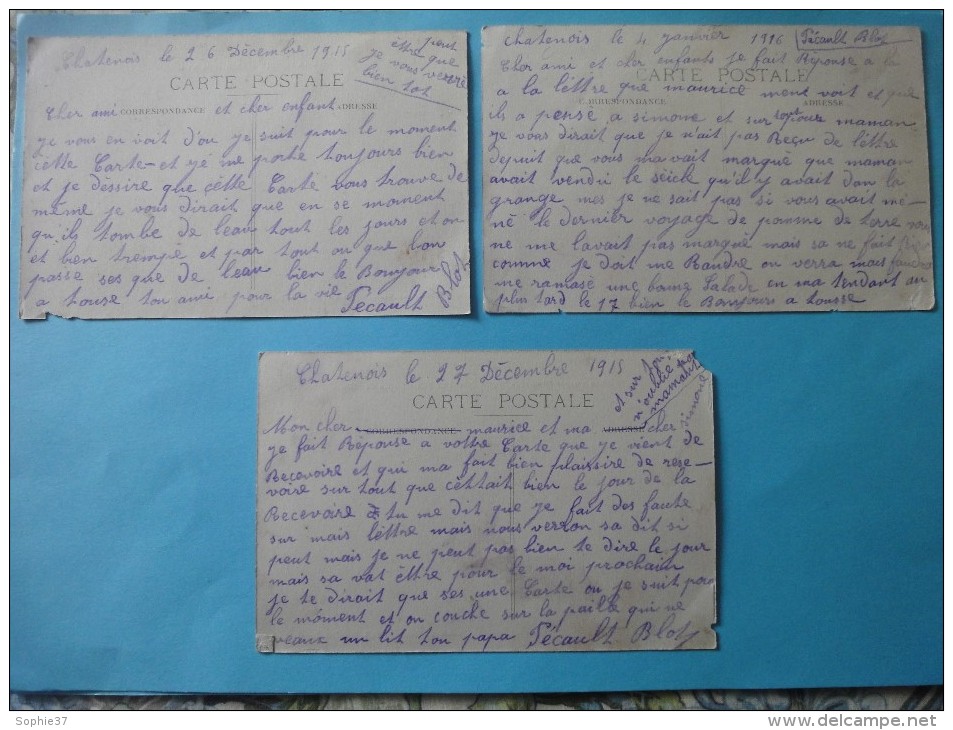 Chatenois le 26 Décembre 1915
êttre peut
que
je vous verré
bien tot
CARTE POSTALE
CORRESPONDANCE
ADRESSE
Cher ami et cher enfant
je vous en voit d'ou je suit pour le moment
cétte Carte et jé me porte toujours bien
et je déssire que cétte Carte vous trouve de
même je vous dirait que en se moment
qu'ils tombe de leau tout les jours et on
et bien trempé et par tout ou que lon
passe ses que de leau bien le Bonjour
a touse ton ami pour la vie Pécault Blot
Chatenois le 4 janvier 1916
Pécault Blot
CARTE POSTALE
CORRESPONDANCE
ADRESSE
Cher ami et cher enfants je fait Réponse a la
a la léttre que maurice mene voit et que
ils a pensé a simone et sur tout pour maman
je vous dirait que je n'ait pas Reçu de léttre
depuit que vous ma vait marqué que maman
avait vendu le séicle qu'il y avait dan la
grange mes je ne sait pas si vous avait me-
né le dernier voyage de pomme de terre
ne me lavait pas marqué mais sa ne fait
comme je doit me Randre on verra mais
me ramasé une bonne Salade en ma tendant au
plus tard le 17 bien le Bonjours a tousse
Chatenois le 27 Décembre 1915
et sur tout
n'oublié pas
mamant
simone
CARTE POSTALE
CORRESPONDANCE
ADRESSE
Mon cher maurice et ma cher
je fait Réponse a vottre Carte que je vient de
Recevoire et qui ma fait bien plaissire de rese-
voire sur tout que céttait bien le jour de la
Recevoire tu me dit que je fait des faute
sur mais léttre mais nous verron sa dit si
peut mais je ne peut pas bien te dire le jour
mais sa vat éttre pour le moi prochain
je te dirait que ses une Carte ou je suit pour
le móment et on couche sur la paille qui ne
veaux un lit ton papa Pécault Blot
Sophie37
http://www.delcampe.net